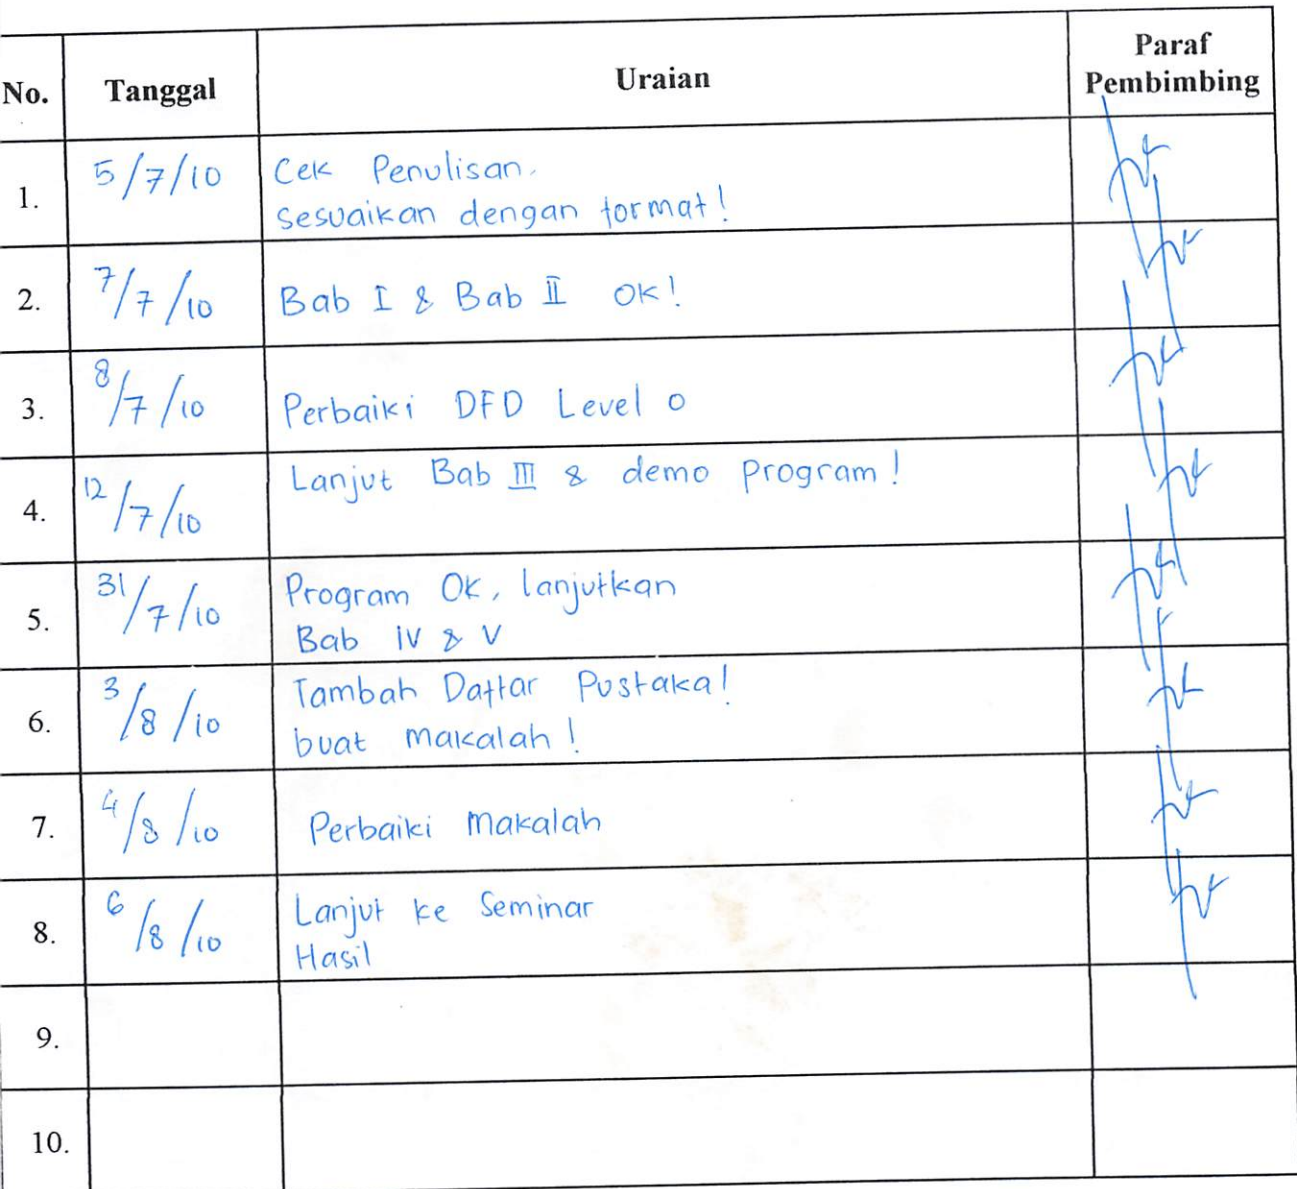 No. Tanggal Uraian Paraf Pembimbing
1. 5/7/10 Cek Penulisan.
sesuaikan dengan format!
2. 7/7/10 Bab I & Bab II OK!
3. 8/7/10 Perbaiki DFD Level 0
4. 12/7/10 Lanjut Bab III & demo program!
5. 31/7/10 Program OK, lanjutkan
Bab iV & V
6. 3/8/10 Tambah Daftar Pustaka!
buat makalah!
7. 4/8/10 Perbaiki Makalah
8. 6/8/10 Lanjut ke Seminar
Hasil
9.
10.